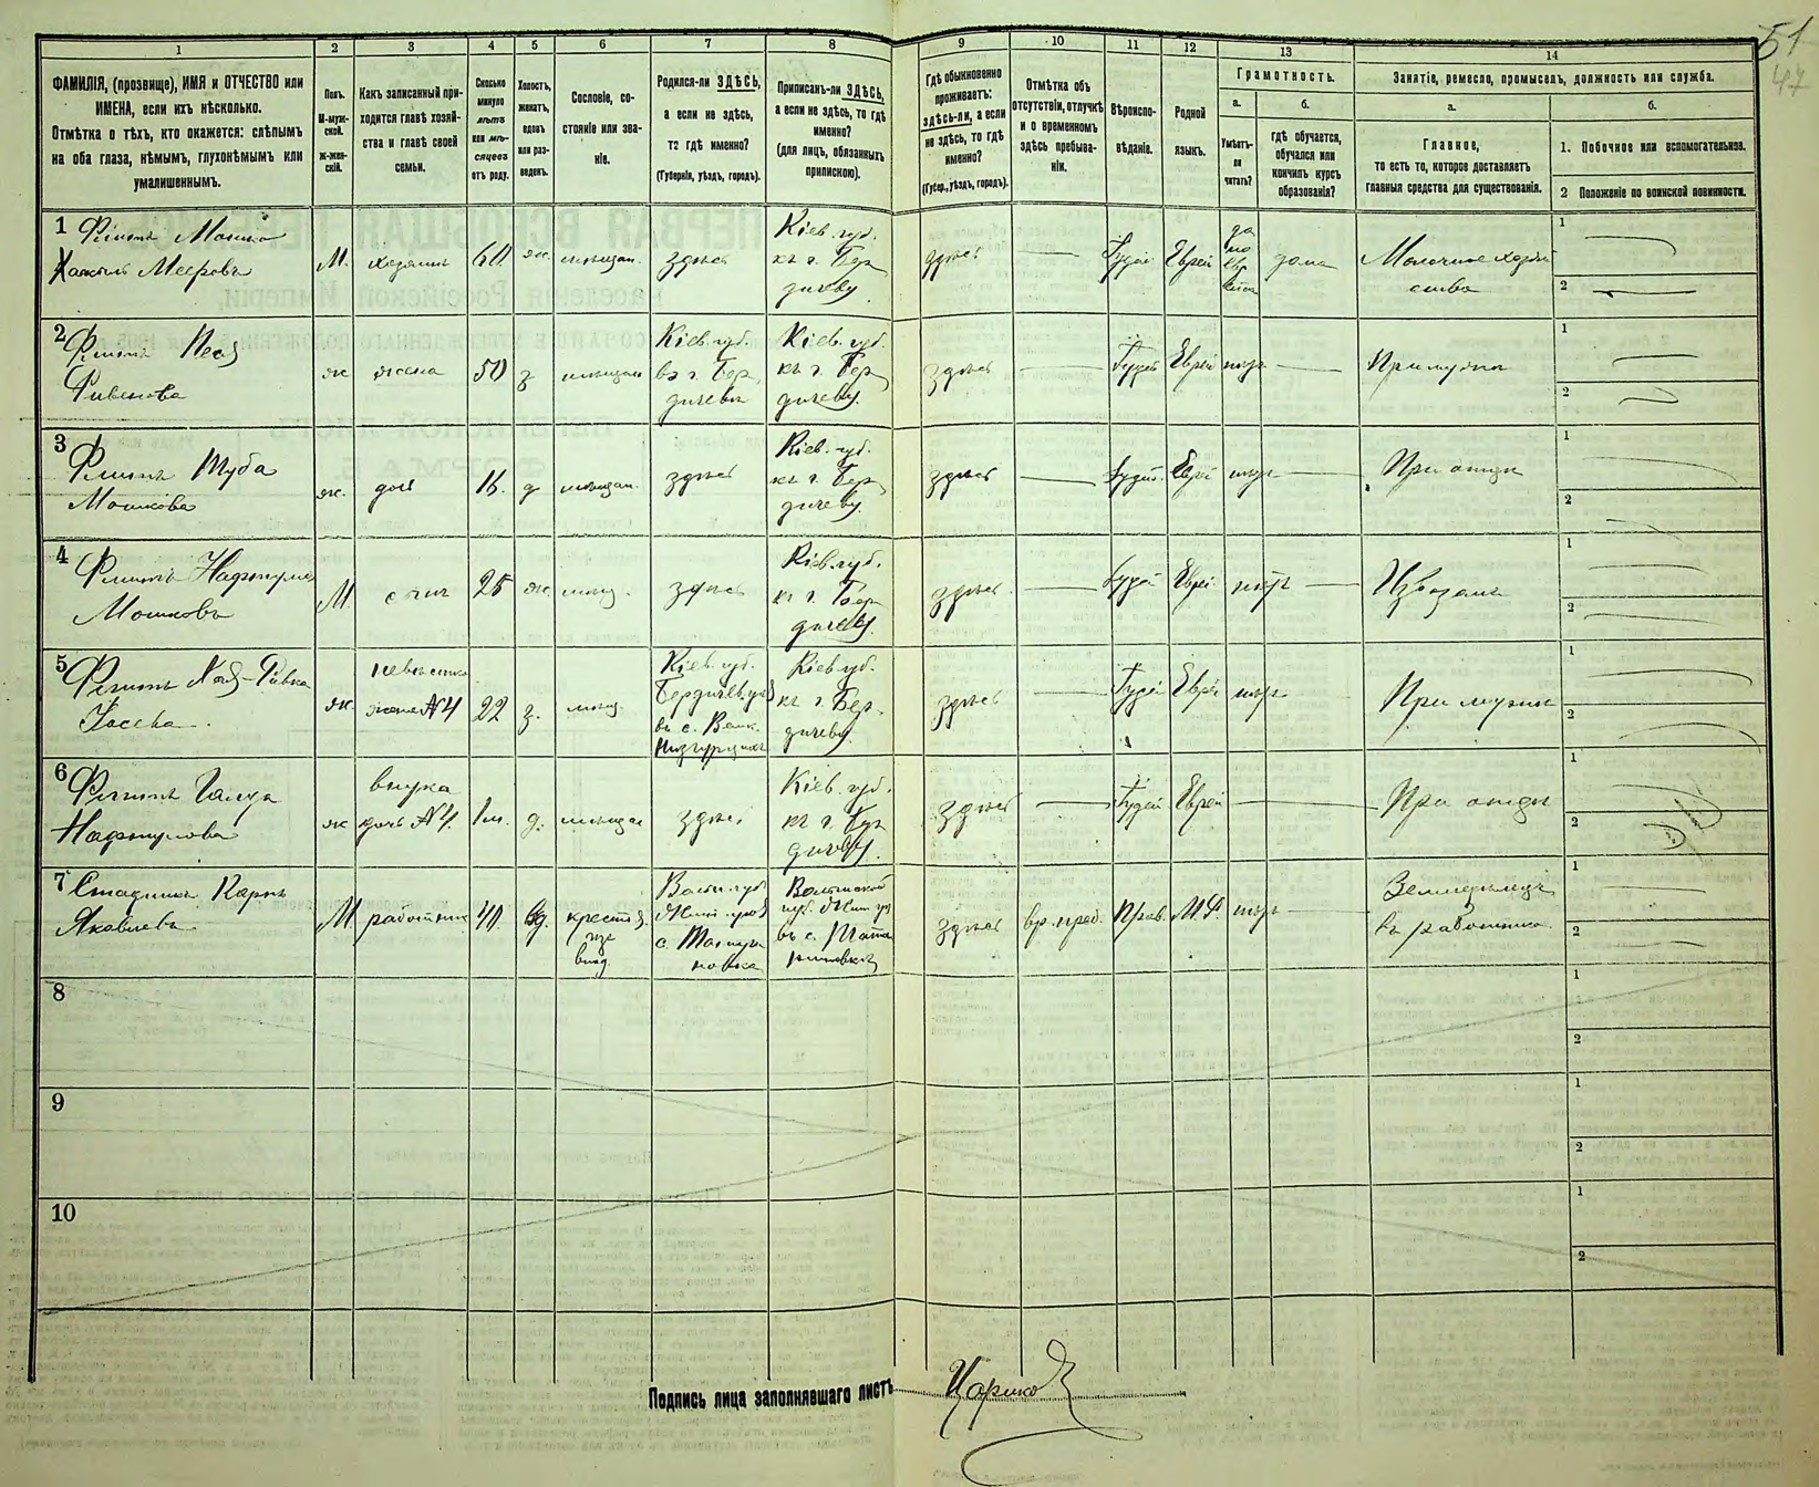 51
47
1
2
3
4
5
6
7
8
9
10
11
12
13
14
ФАМИЛІЯ, (прозвище), ИМЯ и ОТЧЕСТВО или
ИМЕНА, если ихъ нѣсколько.
Отмѣтка о тѣхъ, кто окажется: слѣпымъ
на оба глаза, нѣмымъ, глухонѣмымъ или
умалишеннымъ.
Полъ.
М-муж-
ской.
Ж-жен-
скій.
Какъ записанный при-
ходится главѣ хозяй-
ства и главѣ своей
семьи.
Сколько
минуло
лѣтъ
или мѣ-
сяцевъ
отъ роду.
Холостъ,
женатъ,
вдовъ
или раз-
веденъ.
Сословіе, со-
стояніе или зва-
ніе.
Родился-ли ЗДѢСЬ,
а если не здѣсь,
то гдѣ именно?
(Губернія, уѣздъ, городъ).
Приписанъ-ли ЗДѢСЬ,
а если не здѣсь, то гдѣ
именно?
(для лицъ, обязанныхъ
припискою).
Гдѣ обыкновенно
проживаетъ:
здѣсь-ли, а если
не здѣсь, то гдѣ
именно?
(Губер., уѣздъ, городъ).
Отмѣтка объ
отсутствіи, отлучкѣ
и о временномъ
здѣсь пребыва-
ніи.
Вѣроиспо-
вѣданіе.
Родной
языкъ.
Грамотность.
а.
б.
Умѣетъ-
ли
читать?
гдѣ обучается,
обучался или
кончилъ курсъ
образованія?
Занятіе, ремесло, промыселъ, должность или служба.
а.
б.
Главное,
то есть то, которое доставляетъ
главныя средства для существованія.
1. Побочное или вспомогательное.
2 Положеніе по воинской повинности.
1 Мошко
Мееровъ
М.
хозяинъ
60
ж.
мѣщан.
здѣсь
Кіев. губ.
къ г. Бер
дичеву
здѣсь
—
Іудей
Еврей
да
по
евр
ейск
дома
Молочное хозяй
ства
1
2
2
ж
жена
50
з
мѣщан
Кіев. губ.
въ г. Бер
дичевѣ
Кіев. губ.
къ г. Бер
дичеву.
здѣсь
—
Іудей
Еврей
нѣтъ
—
При мужѣ
1
2
3
Мошкова
ж.
дочь
д
мѣщан.
здѣсь
Кіев. губ.
къ г. Бер
дичеву.
здѣсь
—
Іудей
Еврей
нѣтъ
—
При отцѣ
1
2
4 Нафтула
Мошковъ
М.
сынъ
25
ж.
мѣщ.
здѣсь
Кіев. губ.
къ г. Бер
дичеву.
здѣсь
—
Іудей
Еврей
нѣтъ
—
Извозомъ
1
2
5 Хая-Ривка
ж.
невѣстка
жена №4
22
з.
мѣщ.
Кіев. губ.
Бердичев. уѣз
въ с.
Кіев. губ.
къ г. Бер.
дичеву.
здѣсь
—
Іудей
Еврей
нѣтъ
При мужѣ
1
2
6
Нафтулова
ж
внучка
дочь №4.
1м.
д.
мѣщан
здѣсь
Кіев. губ.
къ г. Бер
дичеву.
здѣсь
—
Іудей
Еврей
—
При отцѣ
1
2
7 Стадникъ Карпъ
Яковлевъ
М.
работник
40
вд.
крестья.
изъ
влад.
Волын. губ
Жит. уѣз
с.
Волынской
губ. Жит. уѣз
въ с.
здѣсь
вр. преб.
Прав.
М.Р.
нѣтъ
—
Земледѣлецъ
въ работник.
1
2
8
1
2
9
1
2
10
1
2
Подпись лица заполнявшаго листъ